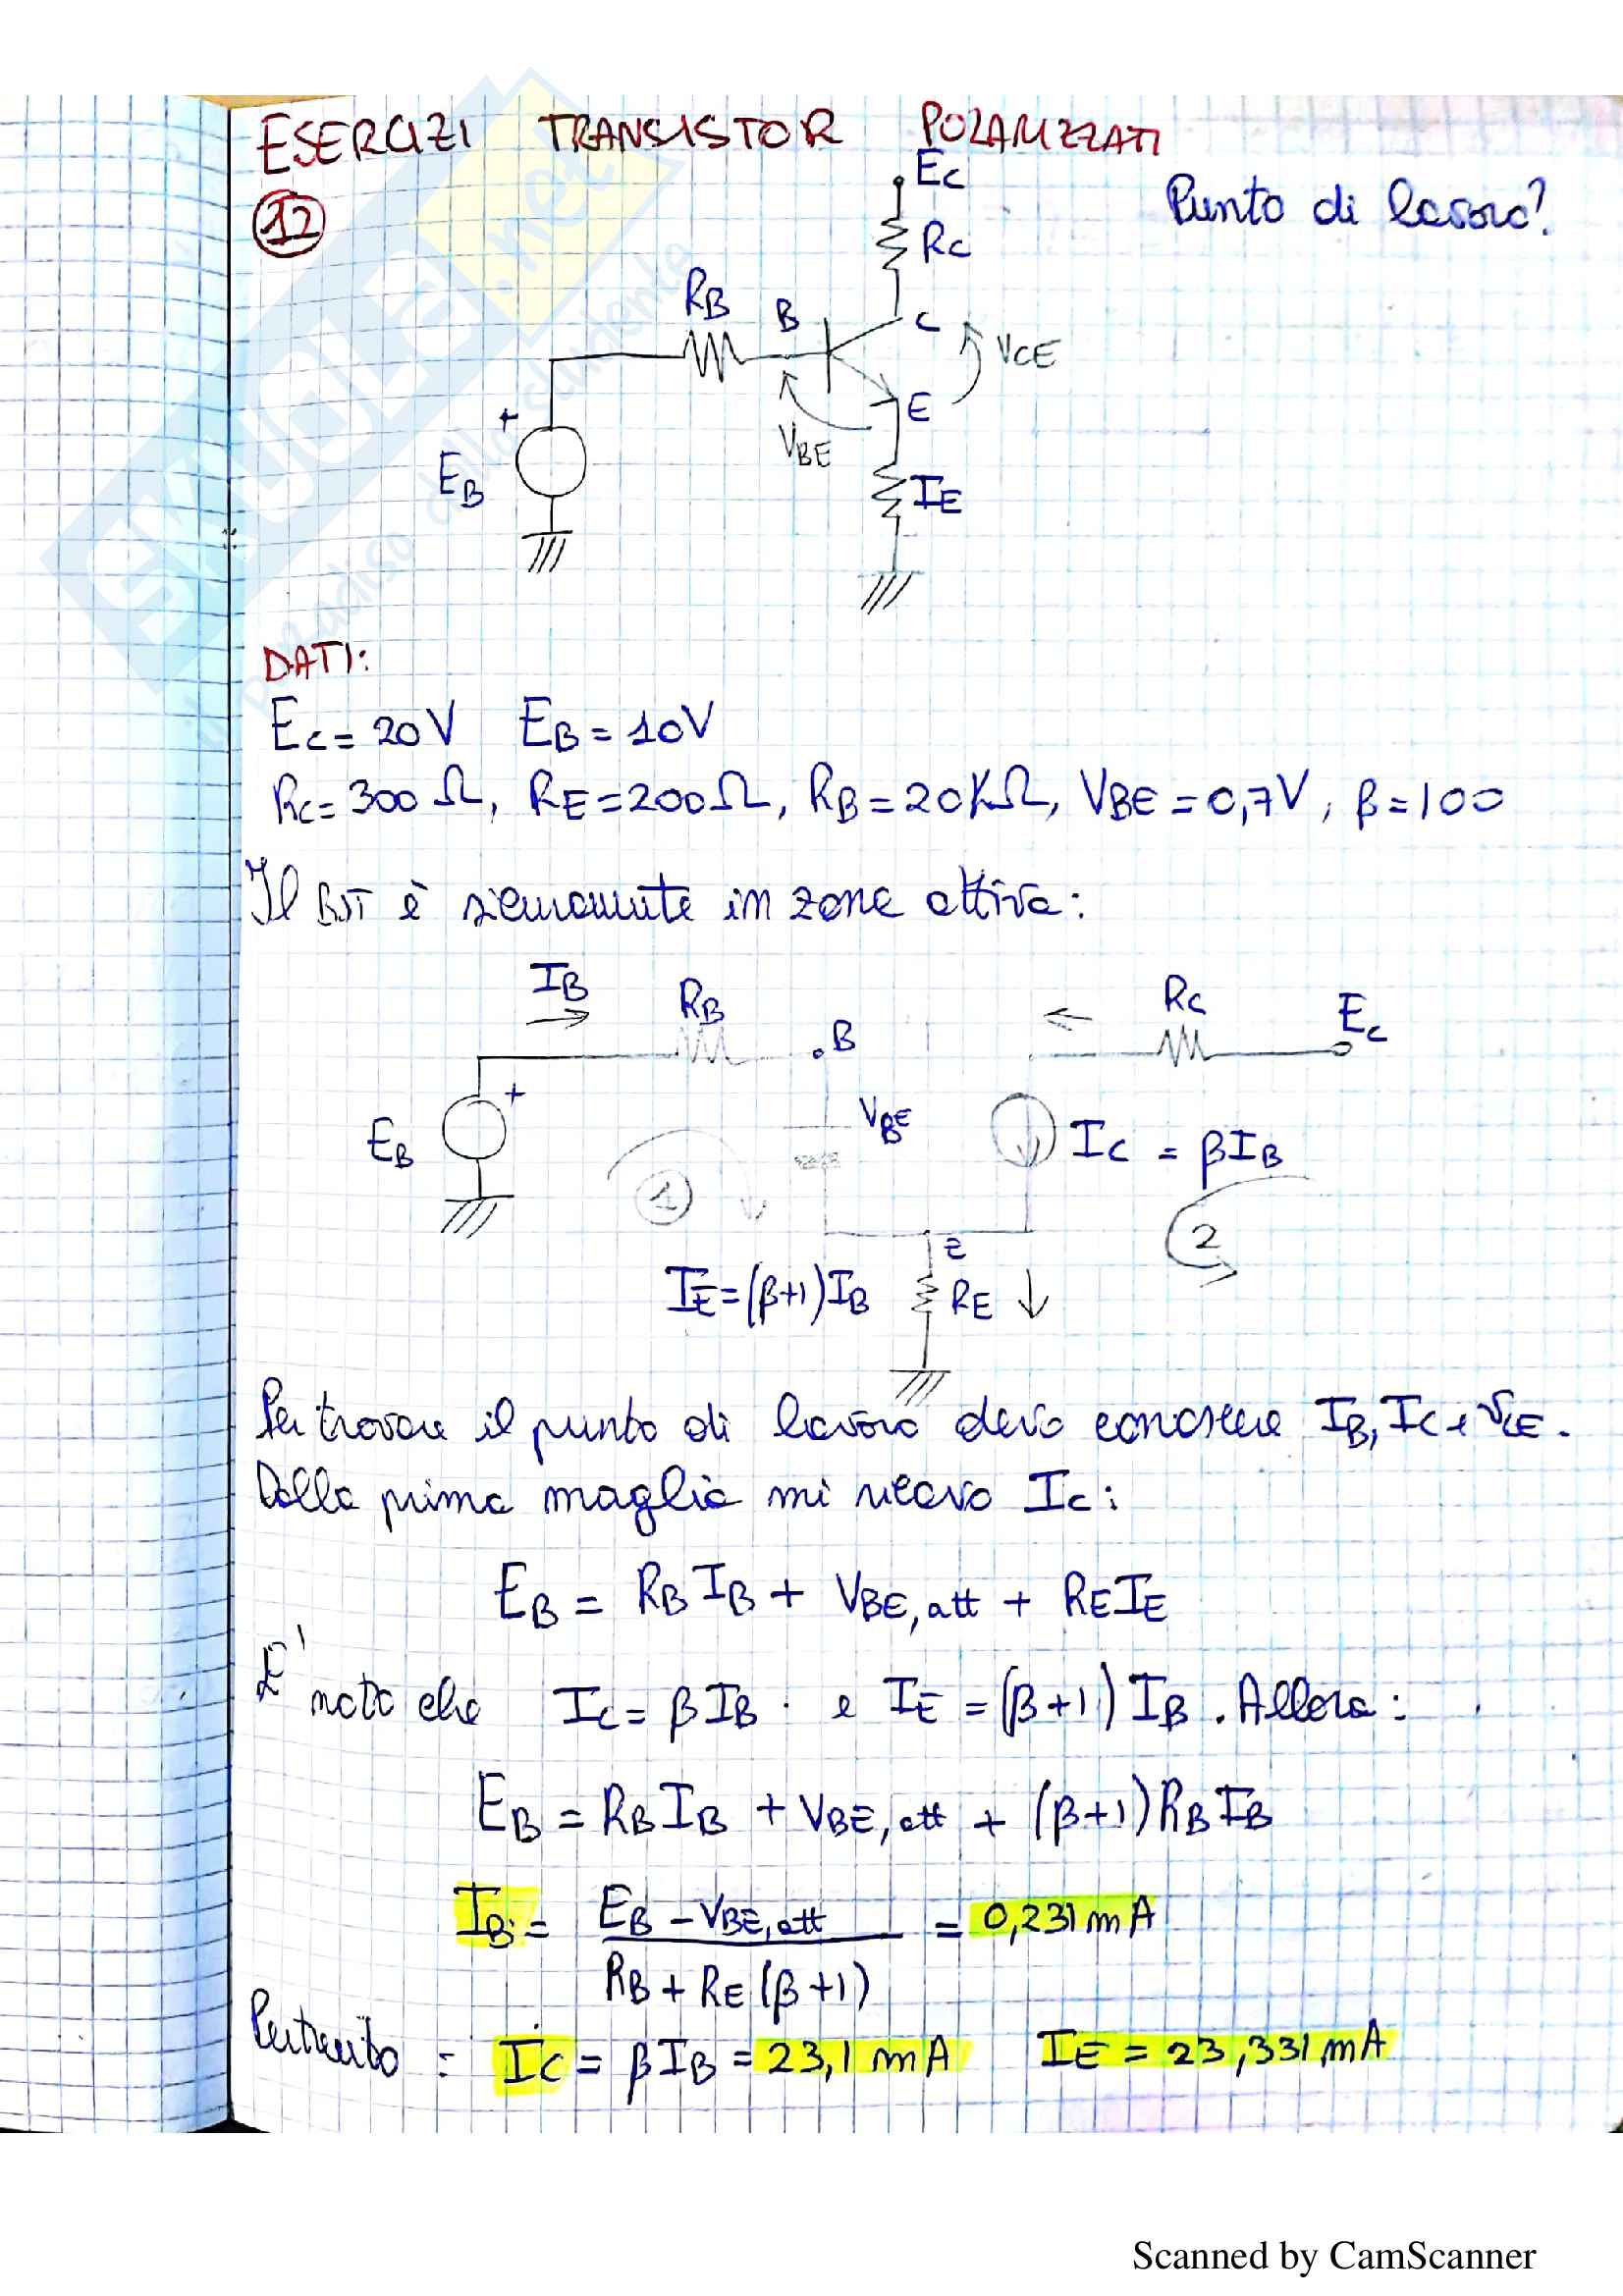 ESERCIZI TRANSISTOR POLARIZZATI
12
Punto di lavoro?
EC
RC
RB
B
C
VCE
E
VBE
EB
+
IE
DATI:
EC = 20V EB = 10V
RC = 300 Ω, RE = 200Ω, RB = 20KΩ, VBE = 0,7V, β = 100
Il BJT è sicuramente in zona attiva:
IB
RB
B
RC
EC
+
EB
VBE
IC = βIB
1
2
E
IE = (β+1)IB
RE
Per trovare il punto di lavoro devo conoscere IB, IC e VCE.
Dalla prima maglia mi ricavo IC:
EB = RB IB + VBE,att + RE IE
E' noto che IC = β IB e IE = (β+1) IB. Allora:
EB = RB IB + VBE,att + (β+1) RB IB
IB = EB - VBE,att / RB + RE (β+1) = 0,231 mA
Pertanto: IC = β IB = 23,1 mA IE = 23,331 mA
SKUOLA.net
Scanned by CamScanner